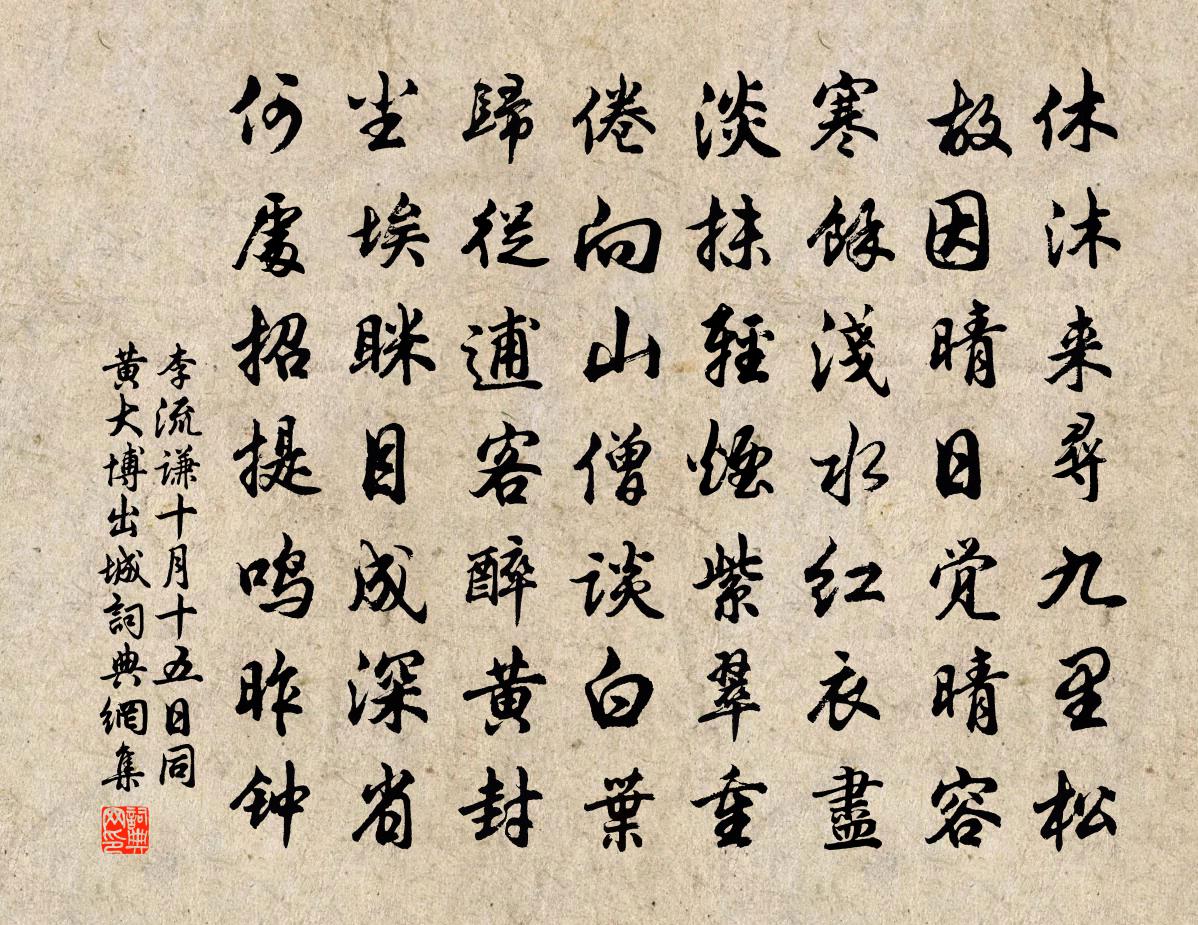 休沐来尋九里松
故因晴日覚晴容
寒餘淺水红衣盡
淡抹輕煙紫翠重
倦向山僧談白葉
歸從逋客醉黄封
尘埃眯目成深省
何處招提鸣昨钟
李流谦十月十五日同
黄大博出城詞典網集
詞典
网印